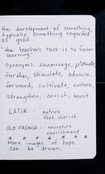 the development of something
typically something regarded
as good
"the teacher's task is to foster
learning"
Synonyms: Encourage, promote
further, stimulate, advance,
forward, cultivate, nurture,
strengthen, enrich, boost
LATIN nutrire
feed, cherish
OLD FRENCH -
nourishment
More images of hope
can be drawn.